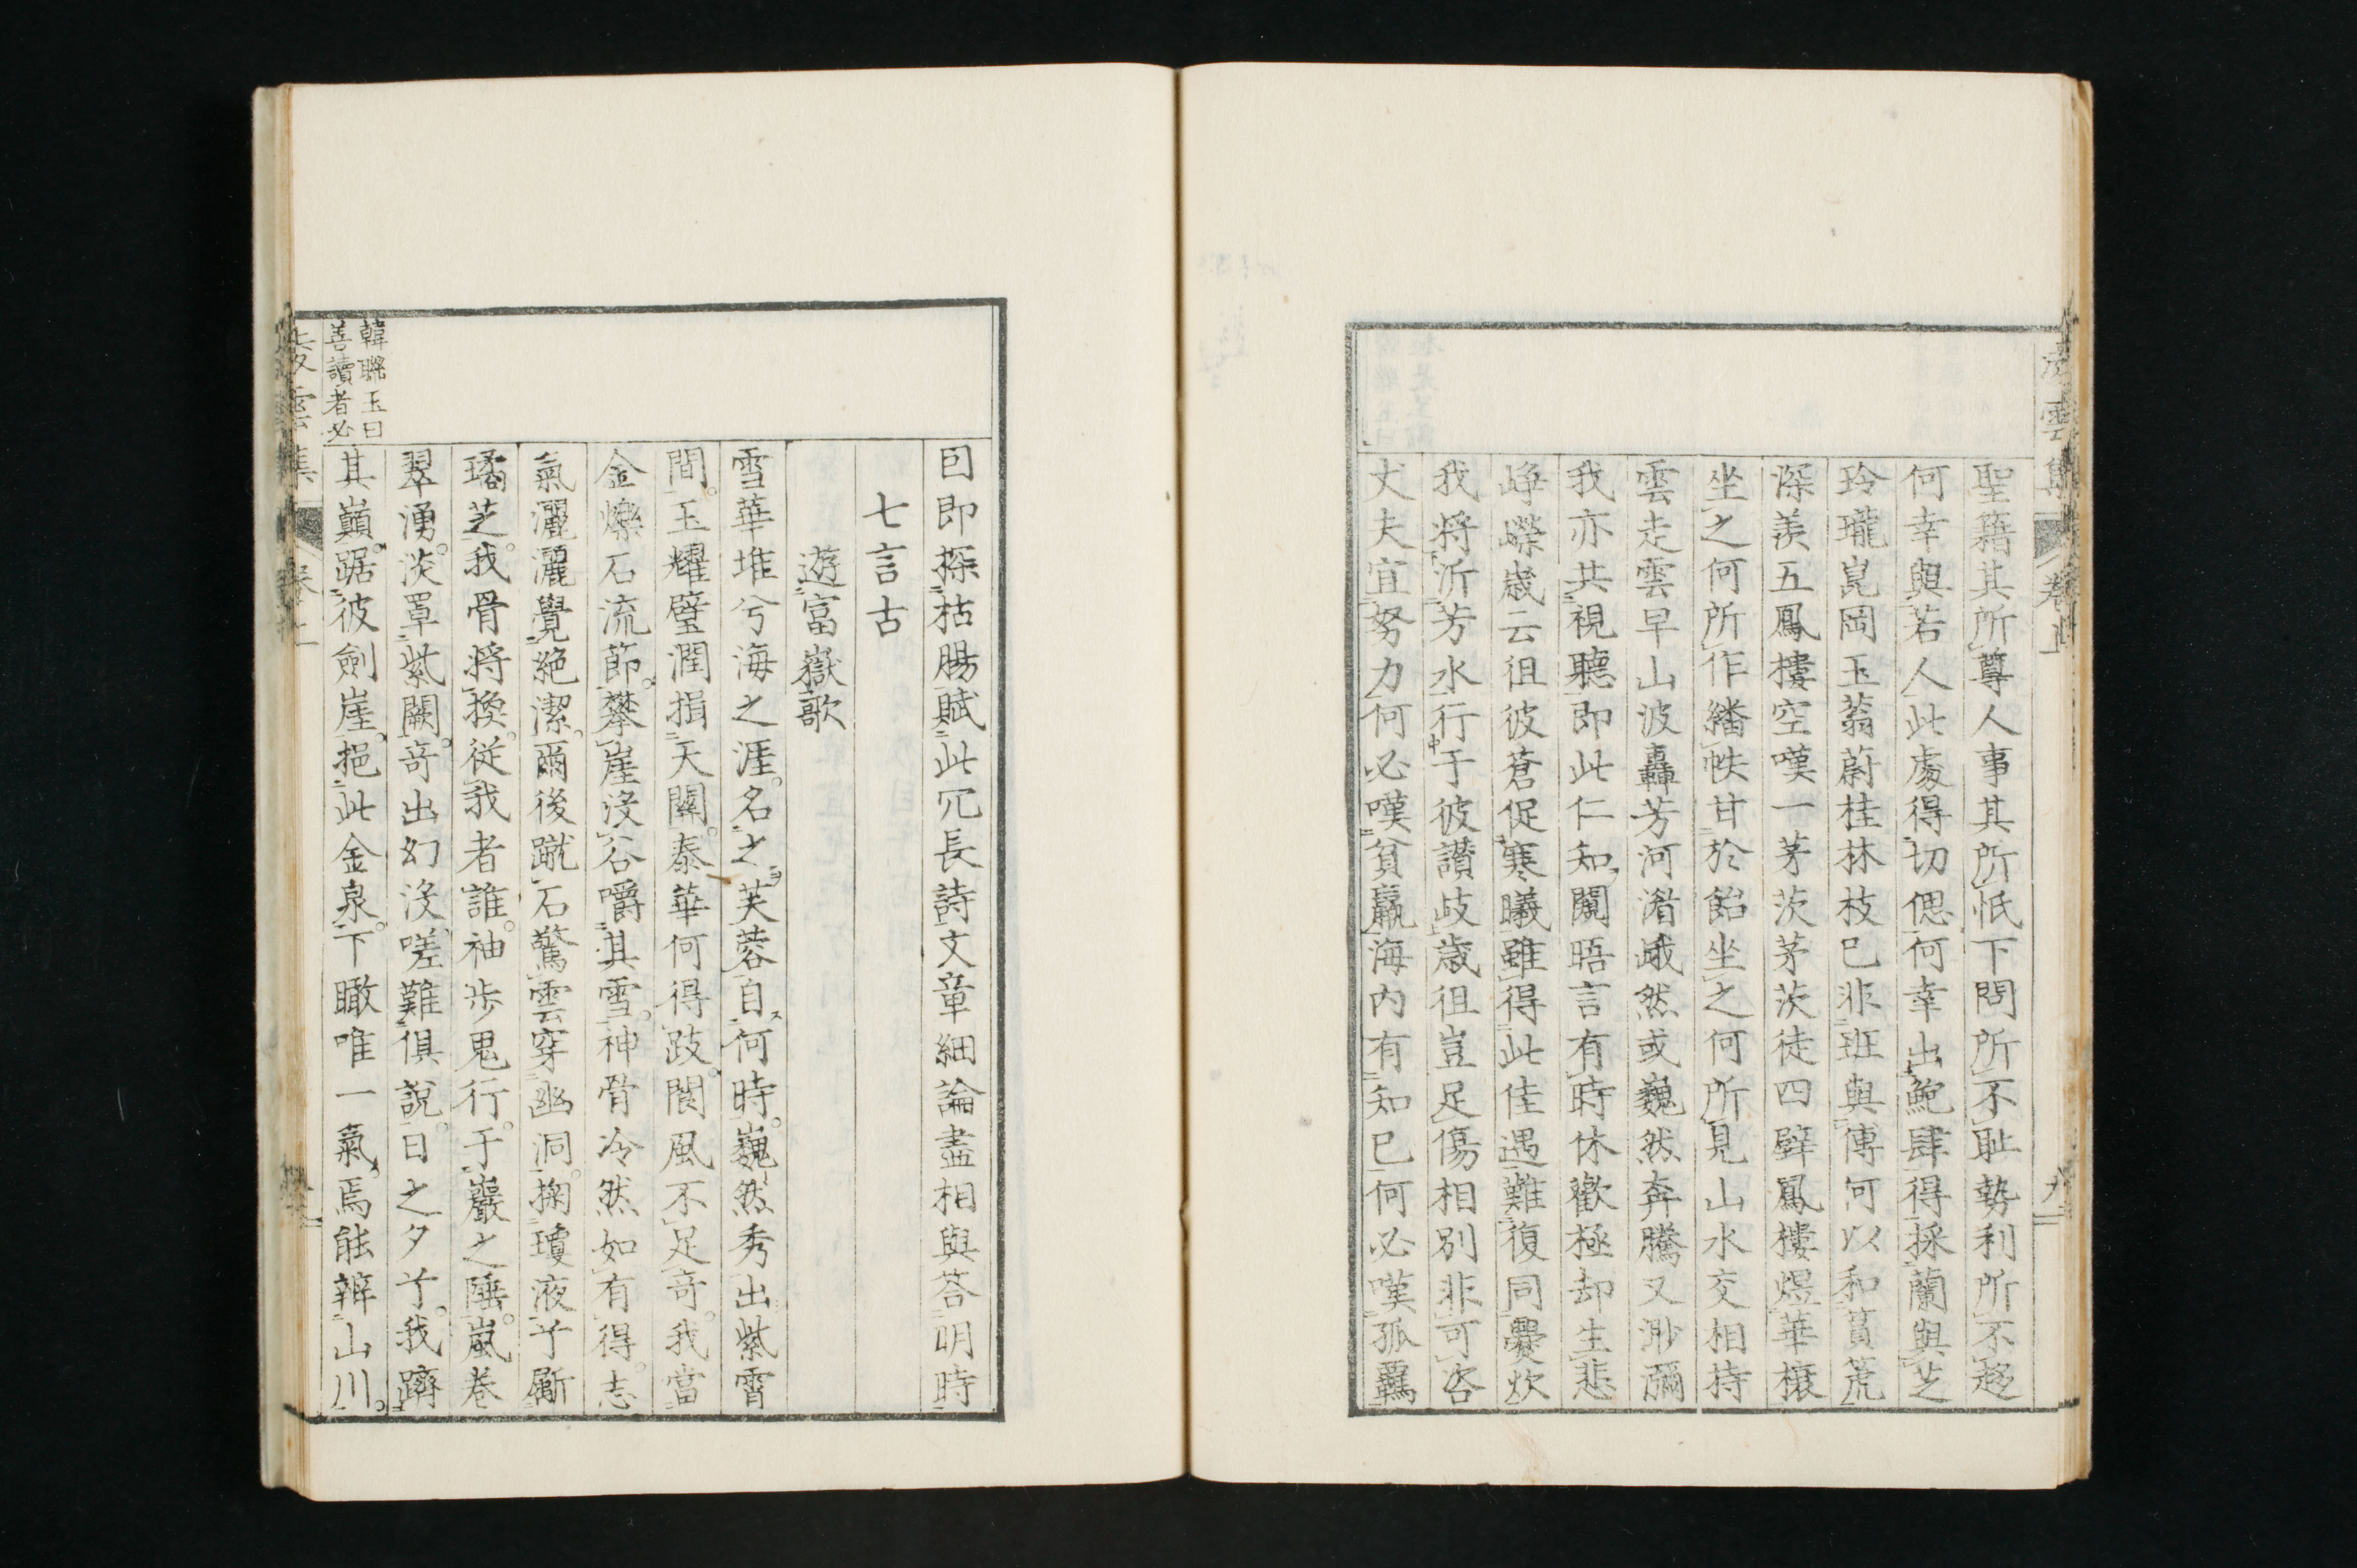 凌雲集 卷上 九
聖籍其所尊人事其所恥下問所不耻勢利所不趍
何幸與若人此處得切偲何幸出鮑肆得採蘭與芝
玲瓏崑岡玉蓊蔚桂林枝已非班與傅何以和箕篪
深羨五鳳樓空嘆一茅茨茅茨徒四壁鳳樓煜華榱
坐之何所作繙帙甘於飴坐之何所見山水交相持
雲走雲早山波轟芳河湝峨然或巍然奔騰又渺瀰
我亦共視聽即此仁知闋晤言有時休歡極却生悲
崢嶸歲云徂彼蒼促寒曦雖得此佳遇難復同爨炊
我將沂芳水行于彼讃岐歲徂豈足傷相別非可咨
丈夫宜努力何必嘆貧羸海內有知已何必嘆孤羈
囙即探枯腸賦此冗長詩文章細論盡相與荅明時
七言古
遊富嶽歌
雪華堆兮海之涯名之芙蓉自何時巍然秀出紫霄
間玉耀璧潤損天闕泰華何得跂閬風不足竒我當
金爍石流節攀崖沒谷嚼其雪神骨冷然如有得志
氣灑灑覺絕潔爾後蹴石驚雲穿幽洞掬瓊液兮斸
璚芝我骨將換從我者誰袖步鬼行于巖之陲嵐卷
翠湧淡罩紫闕竒出幻沒嗟難俱說日之夕兮我躋
其巔踞彼劍崖挹此金泉下瞰唯一氣焉能辨山川
韓聯玉曰
善讀者必